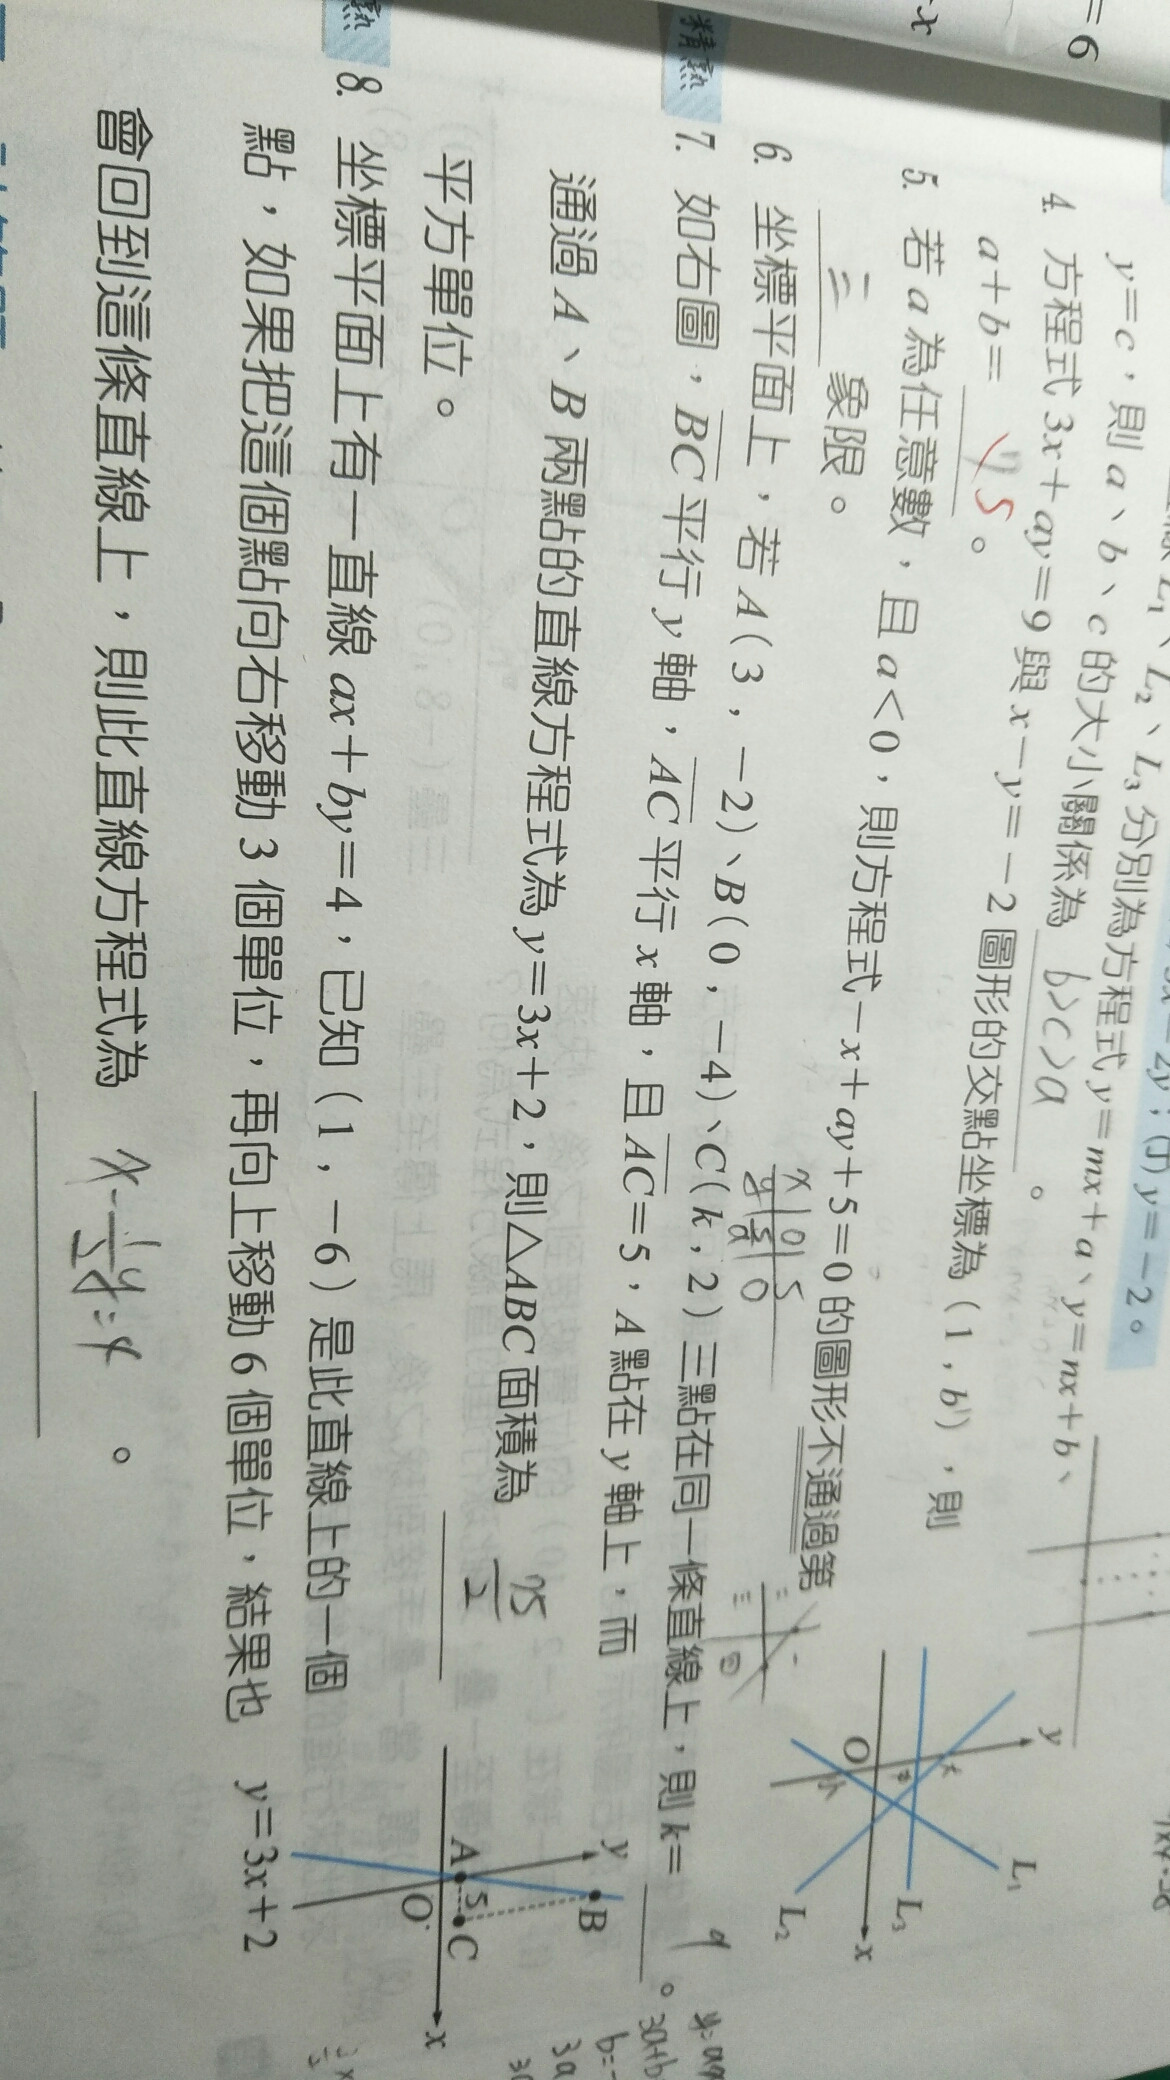 =6
x
y=-2。
L₁、L₂、L₃分別為方程式y=mx+a、y=nx+b、
y=c，則a、b、c的大小關係為 b>c>a 。
4. 方程式3x+ay=9與x-y=-2圖形的交點坐標為(1,b)，則
a+b= 5 。
5. 若a為任意數，且a<0，則方程式-x+ay+5=0的圖形不通過第
二 象限。
x 0 5
0
6. 坐標平面上，若A(3,-2)、B(0,-4)、C(k,2)三點在同一條直線上，則k= 9 。
精熟
7. 如右圖，BC平行y軸，AC平行x軸，且AC=5，A點在y軸上，而
通過A、B兩點的直線方程式為y=3x+2，則△ABC面積為 75/2
平方單位。
熟
8. 坐標平面上有一直線ax+by=4，已知(1,-6)是此直線上的一個
點，如果把這個點向右移動3個單位，再向上移動6個單位，結果也
會回到這條直線上，則此直線方程式為 x-1/2y=4 。
y
L₁
L₃
x
O
L₂
y
B
A
5
C
O
x
y=3x+2